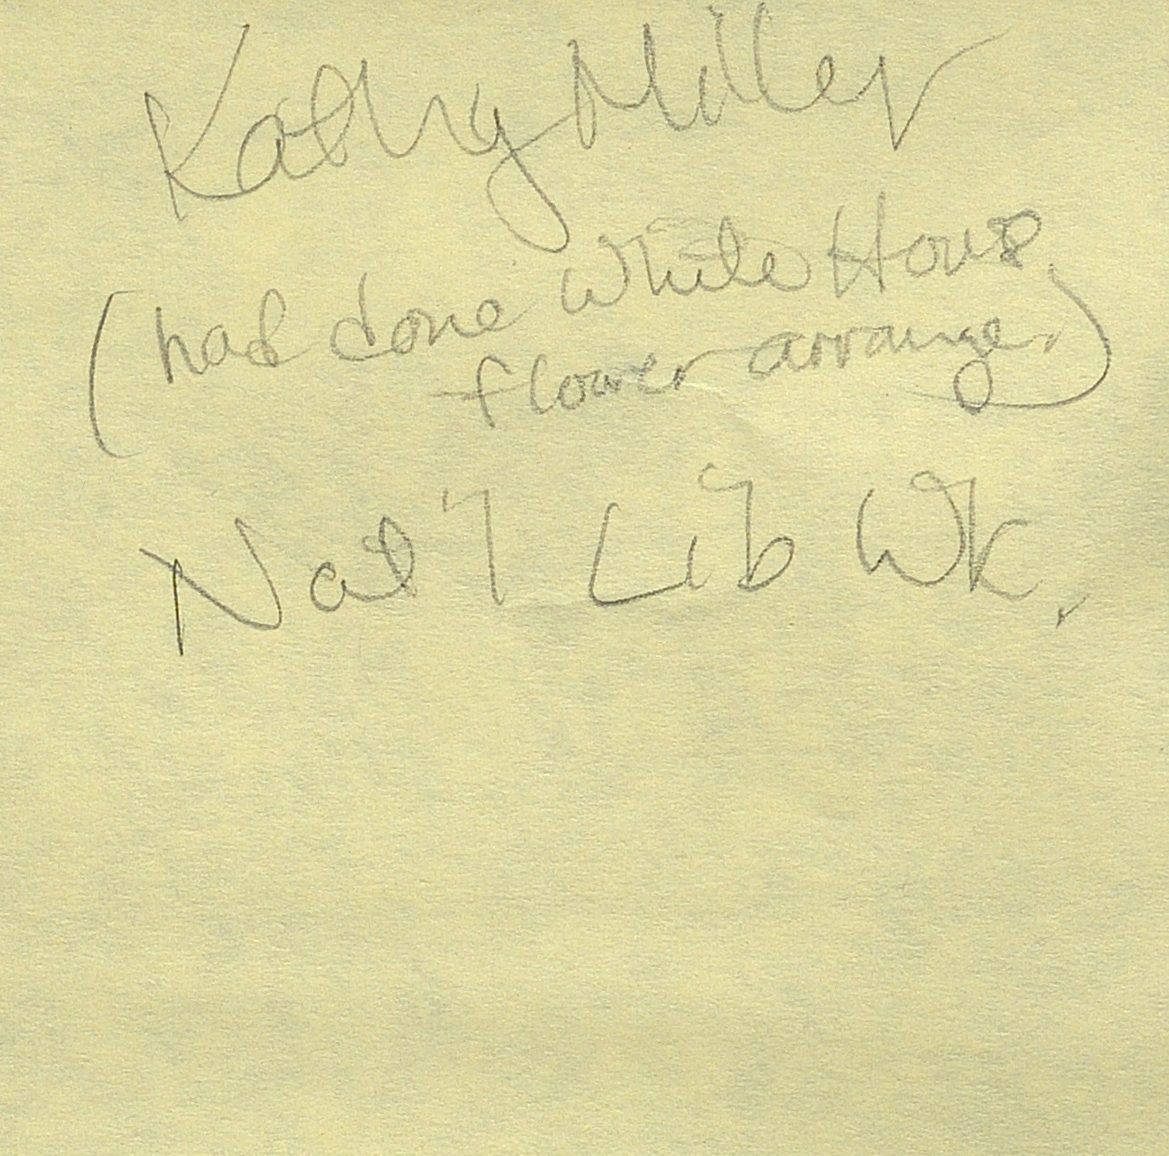 Kathy Miller
(had done White House
flower arrange.)
Nat'l Lib Wk.